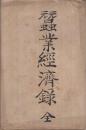 蚕業經濟錄 全